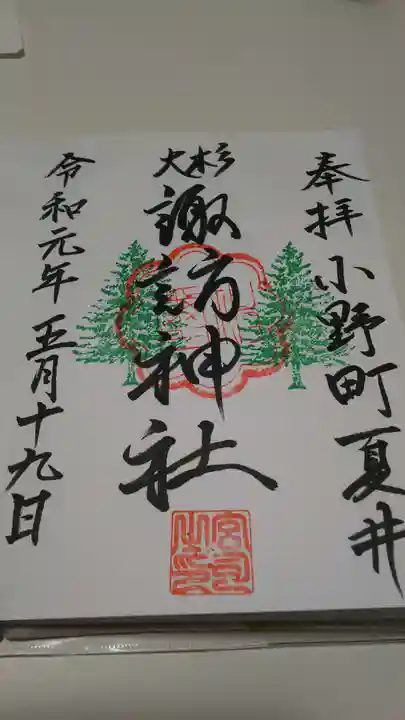 奉拝 小野町夏井
大杉
諏訪神社
令和元年五月十九日